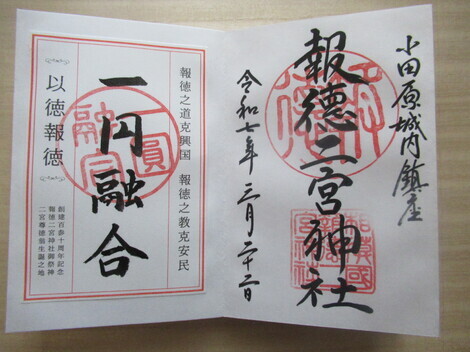 小田原城内鎮座
報徳二宮神社
令和七年三月二十二日
報徳之道克興国 報徳之教克安民
一円融合
以徳報徳
創建百参十周年記念
報徳二宮神社御祭神
二宮尊徳翁生誕之地